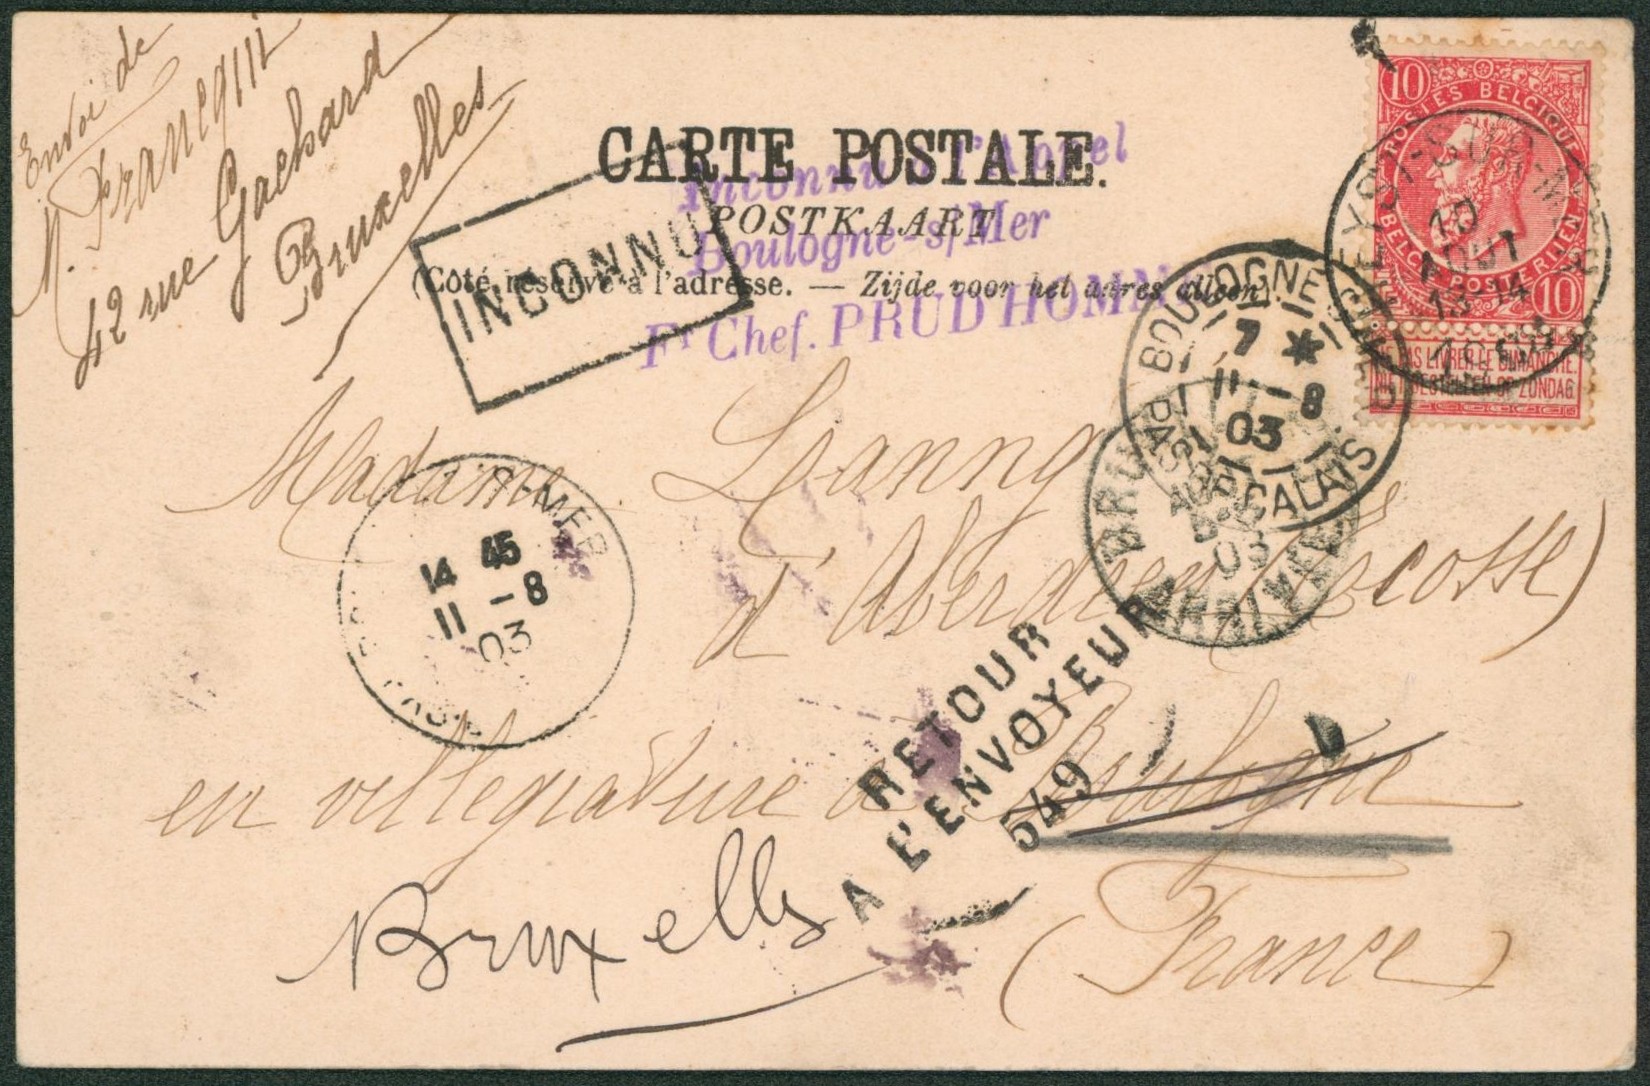 Envoi de
M. Francqui
42 rue Gachard
Bruxelles
CARTE POSTALE.
POSTKAART
(Côté réservé à l'adresse. — Zijde voor het adres alleen).
Inconnu à l'Appel
Boulogne-s/Mer
Fr Chef. PRUD'HOMM
INCONNU
10 10
POSTES BELGIQUE
BELGIE POSTERIJEN
NE PAS LIVRER LE DIMANCHE.
NIET BESTELLEN OP ZONDAG.
HEYST-SUR-MER
10
AOUT
13-14
1903
BOULOGNE-S-MER
7 *
11 -8
03
PAS-DE-CALAIS
BRUXELLES
AOUT
03
ARRIVEE
R-MER
14 45
11 -8
03
Madame
d'Aberdeen (Ecosse)
en villégiature à Boulogne
(France)
Bruxelles
RETOUR
A L'ENVOYEUR
549